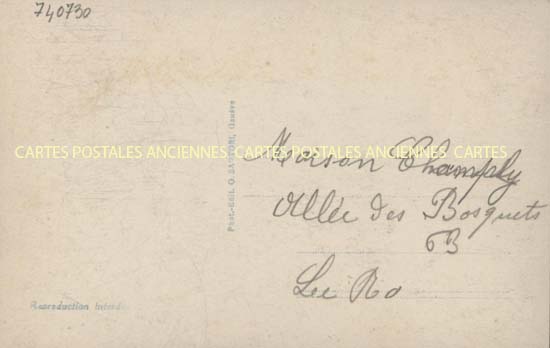 740730
CARTES POSTALES ANCIENNES CARTES POSTALES ANCIENNES CARTES
Phot.-Edit. O. SARTORI, Genève
Maison Champly
Allée des Bosquets
63
Reproduction interdite